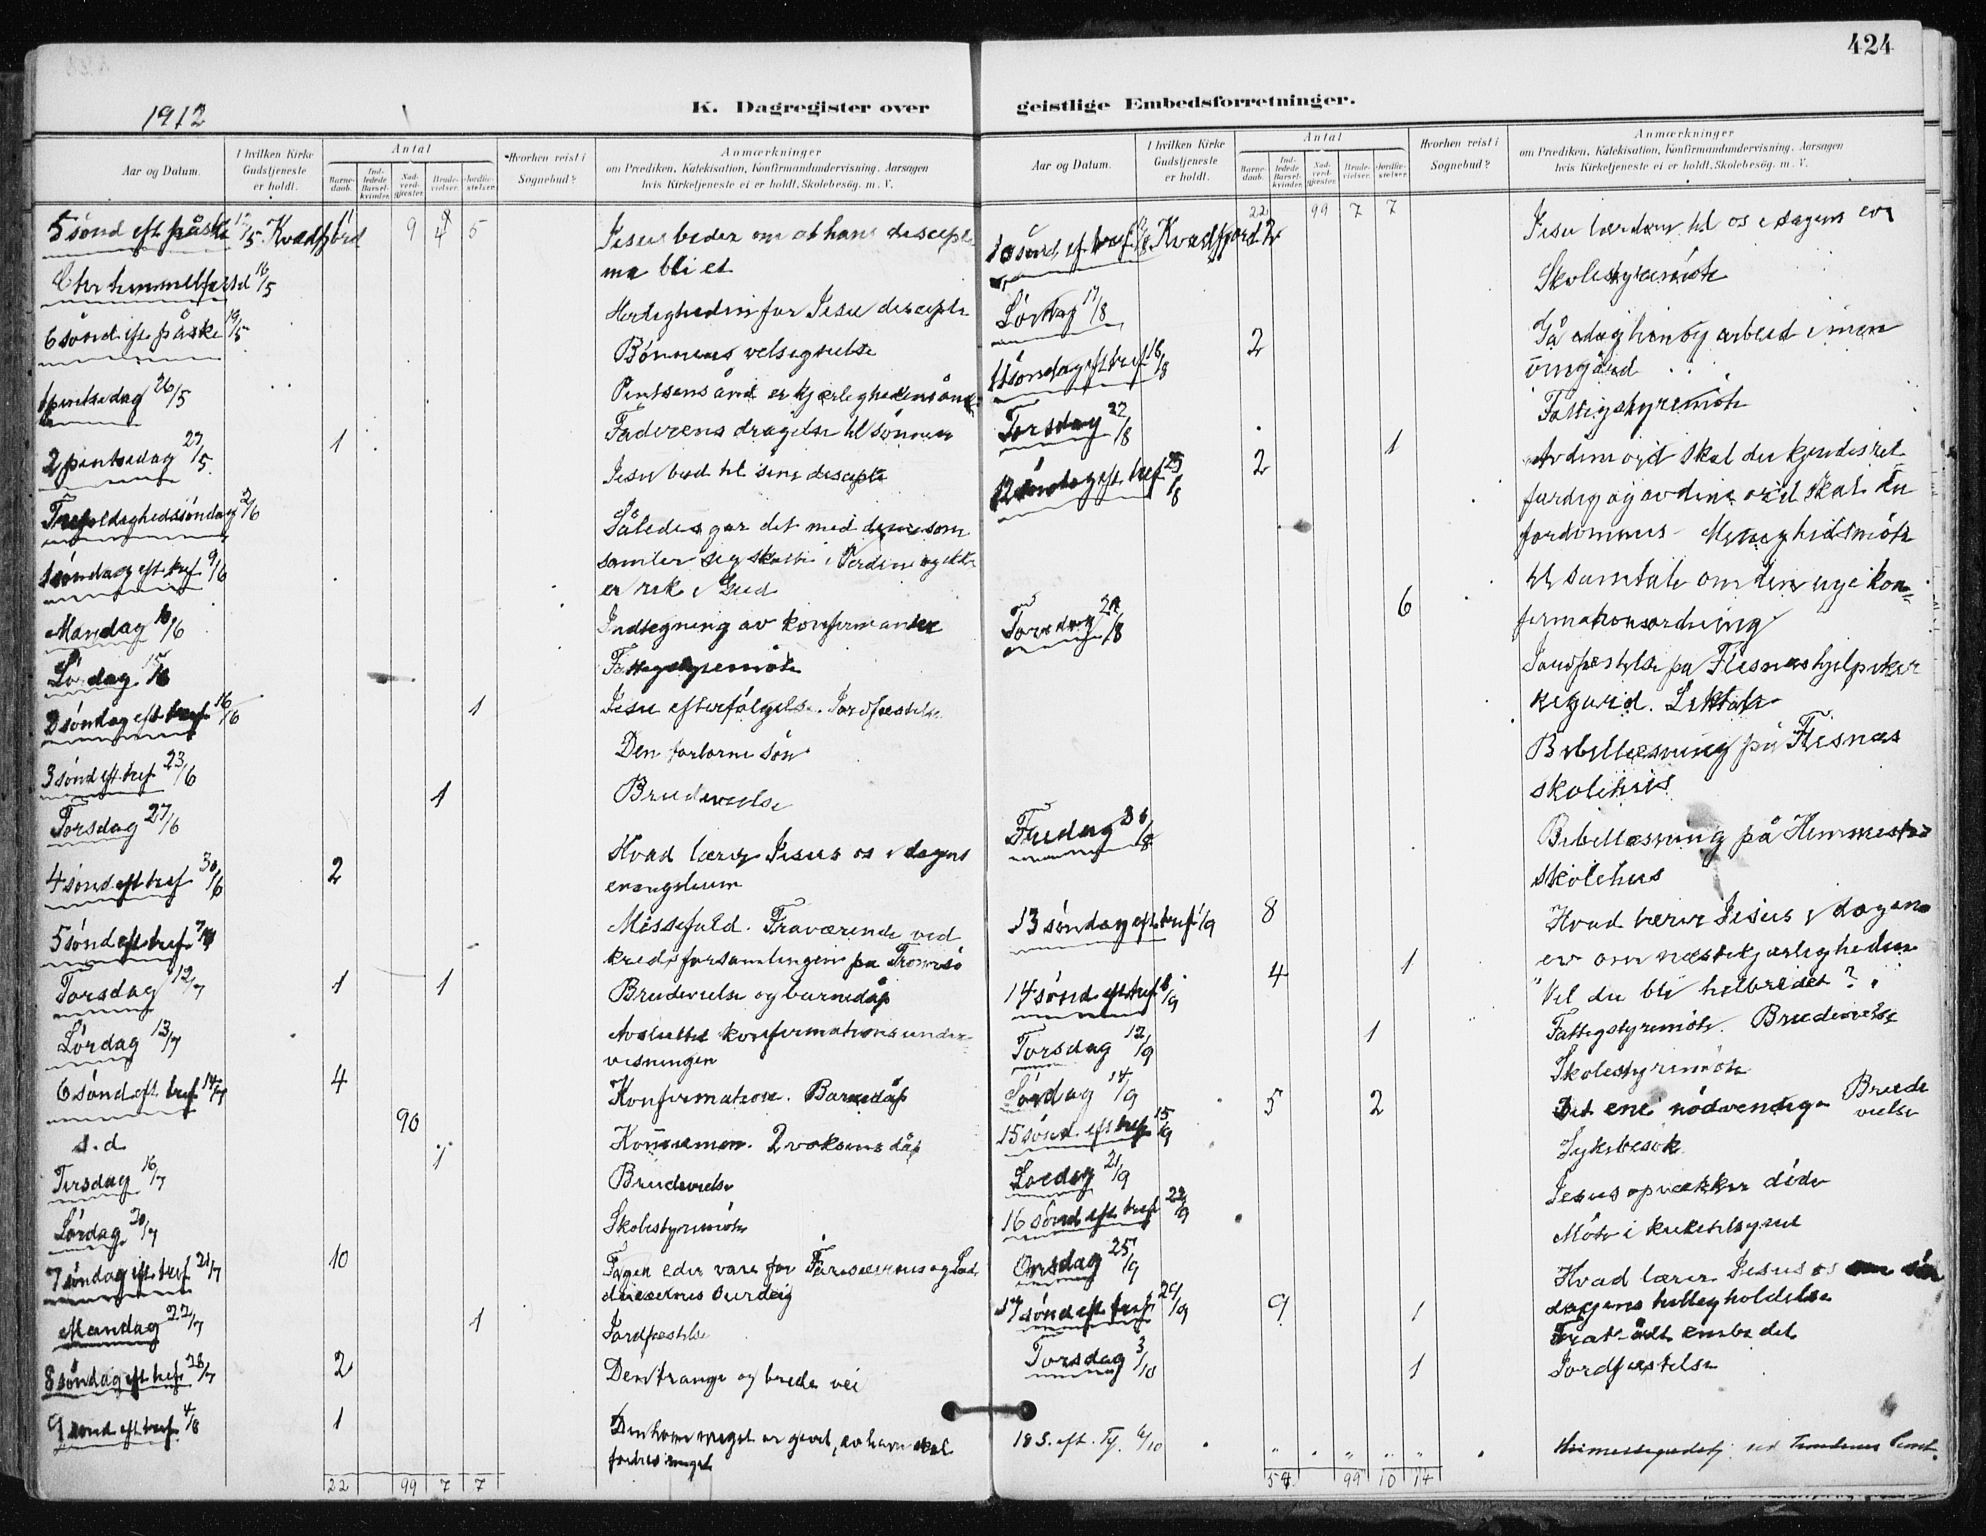 424
1912
K. Dagregister over geistlige Embedsforretninger.
Aar og Datum.
I hvilken Kirke Gudstjeneste er holdt.
Antal
Barne-daab.
Ind-ledede Barsel-kvinder.
Nad-verd-gjester.
Brude-vielser.
Jordfæ-stelser.
Hvorhen reist i Sognebud?
Anmærkninger
om Prædiken, Katekisation, Konfirmandundervisning, Aarsagen
hvis Kirketjeneste ei er holdt, Skolebesøg. m. V.
5 sønd eft påske 12/5 Kvæfjord 9 4 5 Jesus beder om at hans disciple
må bli et
Chr himmelfartsd 16/5 Herligheden for Jesu disciple
6 sønd eft påske 19/5 Bønnens velsignelse
1 pintsedag 26/5 Pintsens ånd er kjærlighedens ånd
2 pintsedag 27/5 1 Faderens dragelse til sønnen
Jesu bud til sine disciple
Trefoldighedssøndag 2/6 Således går det med denne som
samler sig skatte i Verden og ikke
1 søndag eft tref 9/6 er rik i Gud
Mandag 10/6 Indtegning av konfirmanter
Lørdag 15/6 Fattigstyremøte
2 søndag eft tref 16/6 1 Jesu efterfølgelse. Jordfæstelse
3 sønd eft tref 23/6 Den fortorne søn
Torsdag 27/6 1 Brudevielse
4 sønd eft tref 30/6 2 Hvad lærer Jesus os i dagens
evangelium
5 sønd eft tref 7/7 Messefald. Fraværende ved
kredsforsamlingen på Tromsø
Torsdag 12/7 1 1 Brudevielse og barnedåp
Lørdag 13/7 Avsluttet konfirmationsunder-
visningen
6 sønd eft tref 14/7 4 Konfirmation. Barnedåp
s.d 90 Kommunion. 2 voksens dåp
Tirsdag 16/7 1 Brudevielse
Lørdag 20/7 Skolestyremøte
7 søndag eft tref 21/7 10 Tagen eder vare for Farisæernes og Sad
ducæernes surdeig
Mandag 22/7 1 Jordfæstelse
8 søndag eft tref 28/7 2 Den trange og brede vei
9 sønd eft tref 4/8 1 Den hvem meget er givet, av ham skal
fordres meget
22 99 7 7
Aar og Datum.
I hvilken Kirke Gudstjeneste er holdt.
Antal
Barne-daab.
Ind-ledede Barsel-kvinder.
Nad-verd-gjester.
Brude-vielser.
Jordfæ-stelser.
Hvorhen reist i Sognebud?
Anmærkninger
om Prædiken, Katekisation, Konfirmandundervisning, Aarsagen
hvis Kirketjeneste ei er holdt, Skolebesøg. m. V.
22 99 7 7
10 sønd eft tref 11/8 Kvædfjord 2 Jesu lærdom til os i dagens ev
Lørdag 17/8 Skolestyremøte
11 søndag eft tref 18/8 2 Gå idag hen og arbeid i min
vingård
Torsdag 22/8 Fattigstyremøte
12 søndag eft tref 25/8 2 1 Av dine ord skal du kjendes ret
færdig og av dine ord skal du
fordømmes. Menighedsmøte
til samtale om den nye kon-
firmationsordning
Torsdag 29/8 6 Jordfæstelse på Flesnes hjelpekir
kegård. Liktale
Bibellæsning på Flesnæs
skolehus
Fredag 30/8 Bibellæsning på Hemmestad
skolehus
13 søndag eft tref 1/9 8 Hvad lærer Jesus i dagens
ev om næstekjærligheden
14 sønd eft tref 8/9 4 1 "Vil du bli helbredet?"
Torsdag 12/9 1 Fattigstyremøte. Brudevielse
Lørdag 14/9 Skolestyremøte
15 sønd eft tref 15/9 5 2 Det ene nødvendige Brude
vielse
Lørdag 21/9 Sykebesøk
16 sønd eft tref 22/9 Jesus opvækker døde
Onsdag 25/9 Møte i kirketilsynet
17 sønd eft tref 29/9 9 1 Hvad lærer Jesus os om søn
dagens helligholdelse
Fratrådt embedet
Torsdag 3/10 1 Jordfæstelse
18 S. eft. Tf. 6/10
54 99 10 14